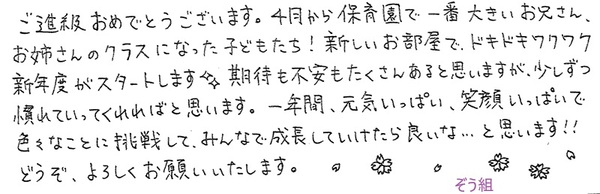 ご進級おめでとうございます。4月から保育園で一番大きいお兄さん、
お姉さんのクラスになった子どもたち！新しいお部屋で、ドキドキワクワク
新年度がスタートします✨期待も不安もたくさんあると思いますが、少しずつ
慣れていってくれればと思います。一年間、元気いっぱい、笑顔いっぱいで
色々なことに挑戦して、みんなで成長していけたら良いな…と思います!!
どうぞ、よろしくお願いいたします。
ぞう組